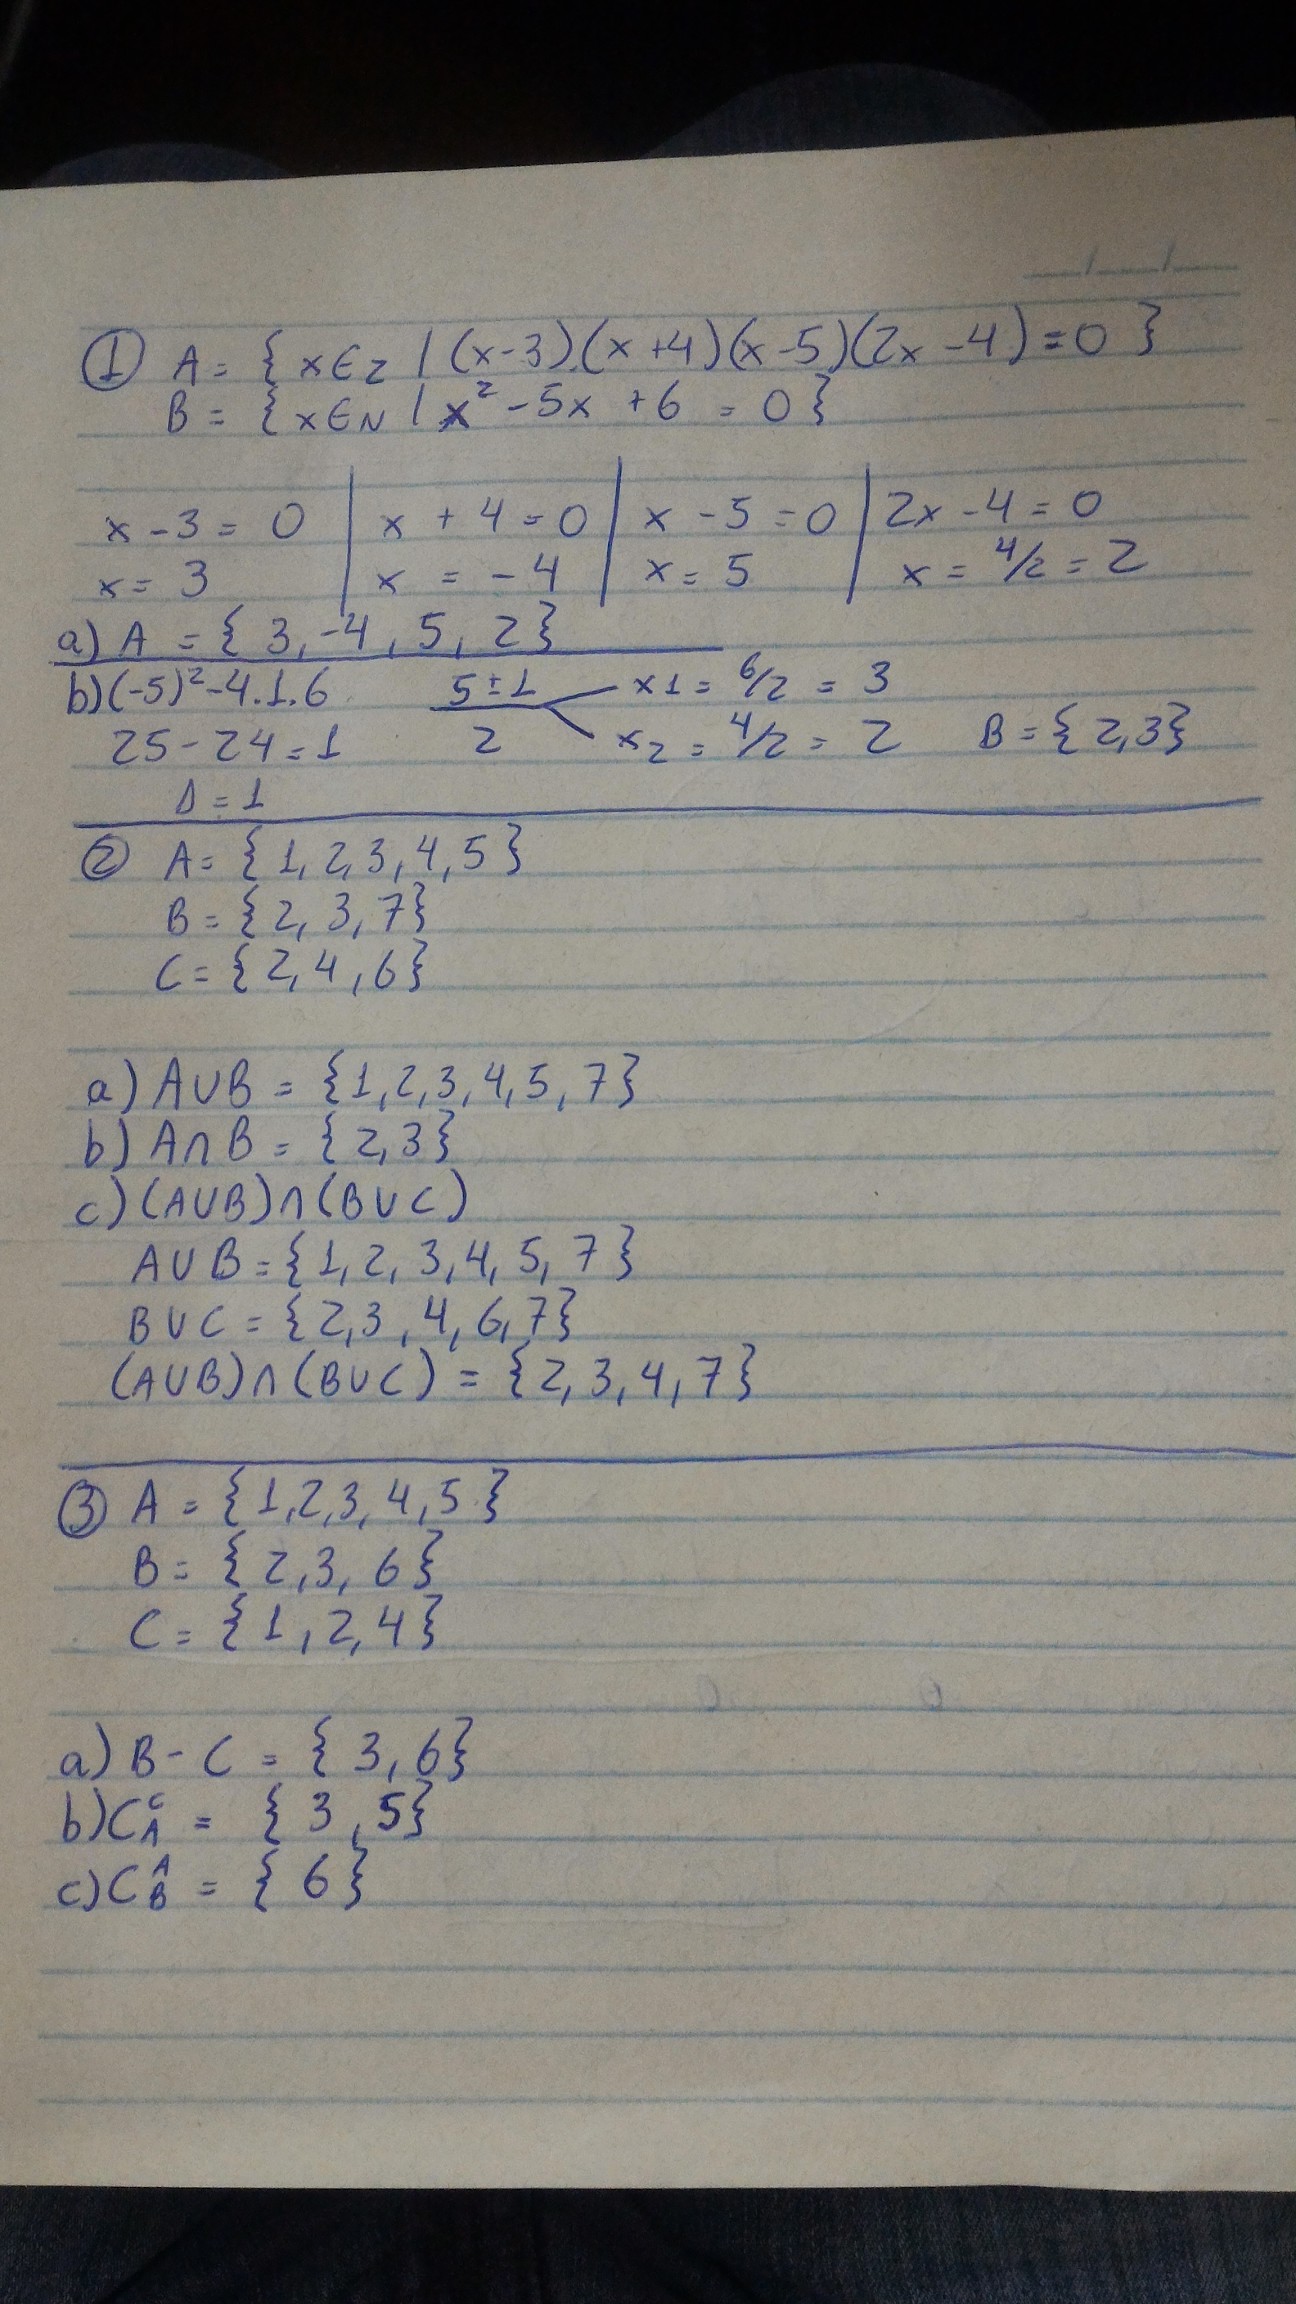 ① A = { x ∈ Z / (x-3).(x+4)(x-5)(2x-4) = 0 }
B = { x ∈ N / x² - 5x + 6 = 0 }
x - 3 = 0 | x + 4 = 0 | x - 5 = 0 | 2x - 4 = 0
x = 3 | x = -4 | x = 5 | x = 4/2 = 2
a) A = { 3, -4, 5, 2 }
b) (-5)² - 4.1.6   5 ± 1   x1 = 6/2 = 3
25 - 24 = 1   2   x2 = 4/2 = 2   B = { 2,3 }
Δ = 1
② A = { 1, 2, 3, 4, 5 }
B = { 2, 3, 7 }
C = { 2, 4, 6 }
a) A∪B = { 1, 2, 3, 4, 5, 7 }
b) A∩B = { 2, 3 }
c) (A∪B)∩(B∪C)
A∪B = { 1, 2, 3, 4, 5, 7 }
B∪C = { 2, 3, 4, 6, 7 }
(A∪B)∩(B∪C) = { 2, 3, 4, 7 }
③ A = { 1, 2, 3, 4, 5 }
B = { 2, 3, 6 }
C = { 1, 2, 4 }
a) B - C = { 3, 6 }
b) C_A^C = { 3, 5 }
c) C_B^A = { 6 }